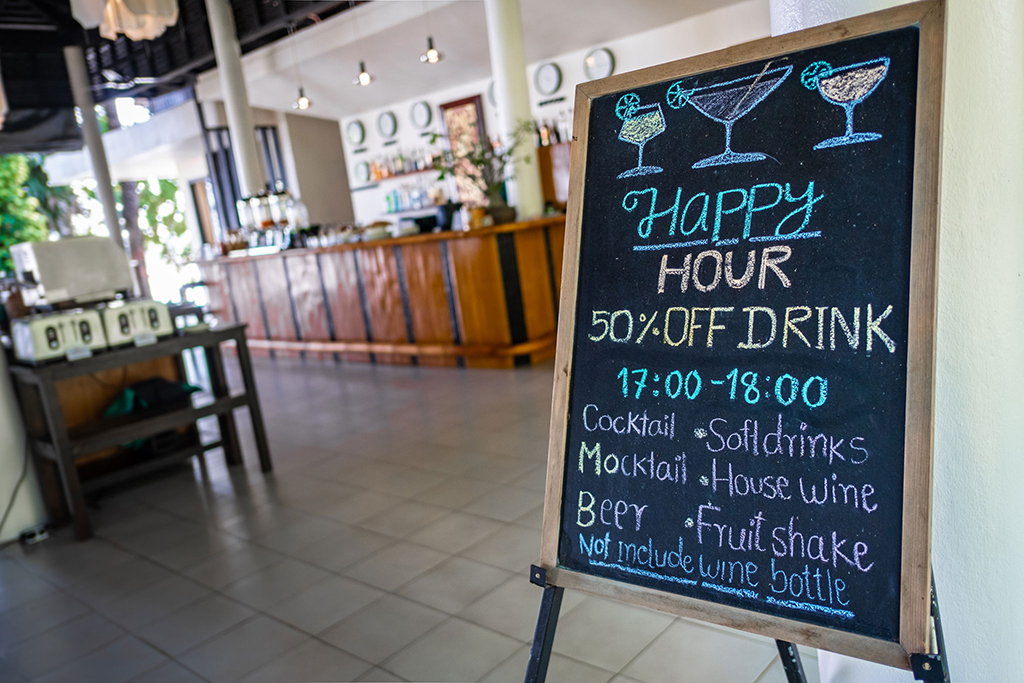 Happy
HOUR
50% OFF DRINK
17:00 - 18:00
Cocktail •Softdrinks
Mocktail •House wine
Beer •Fruit shake
Not include wine bottle